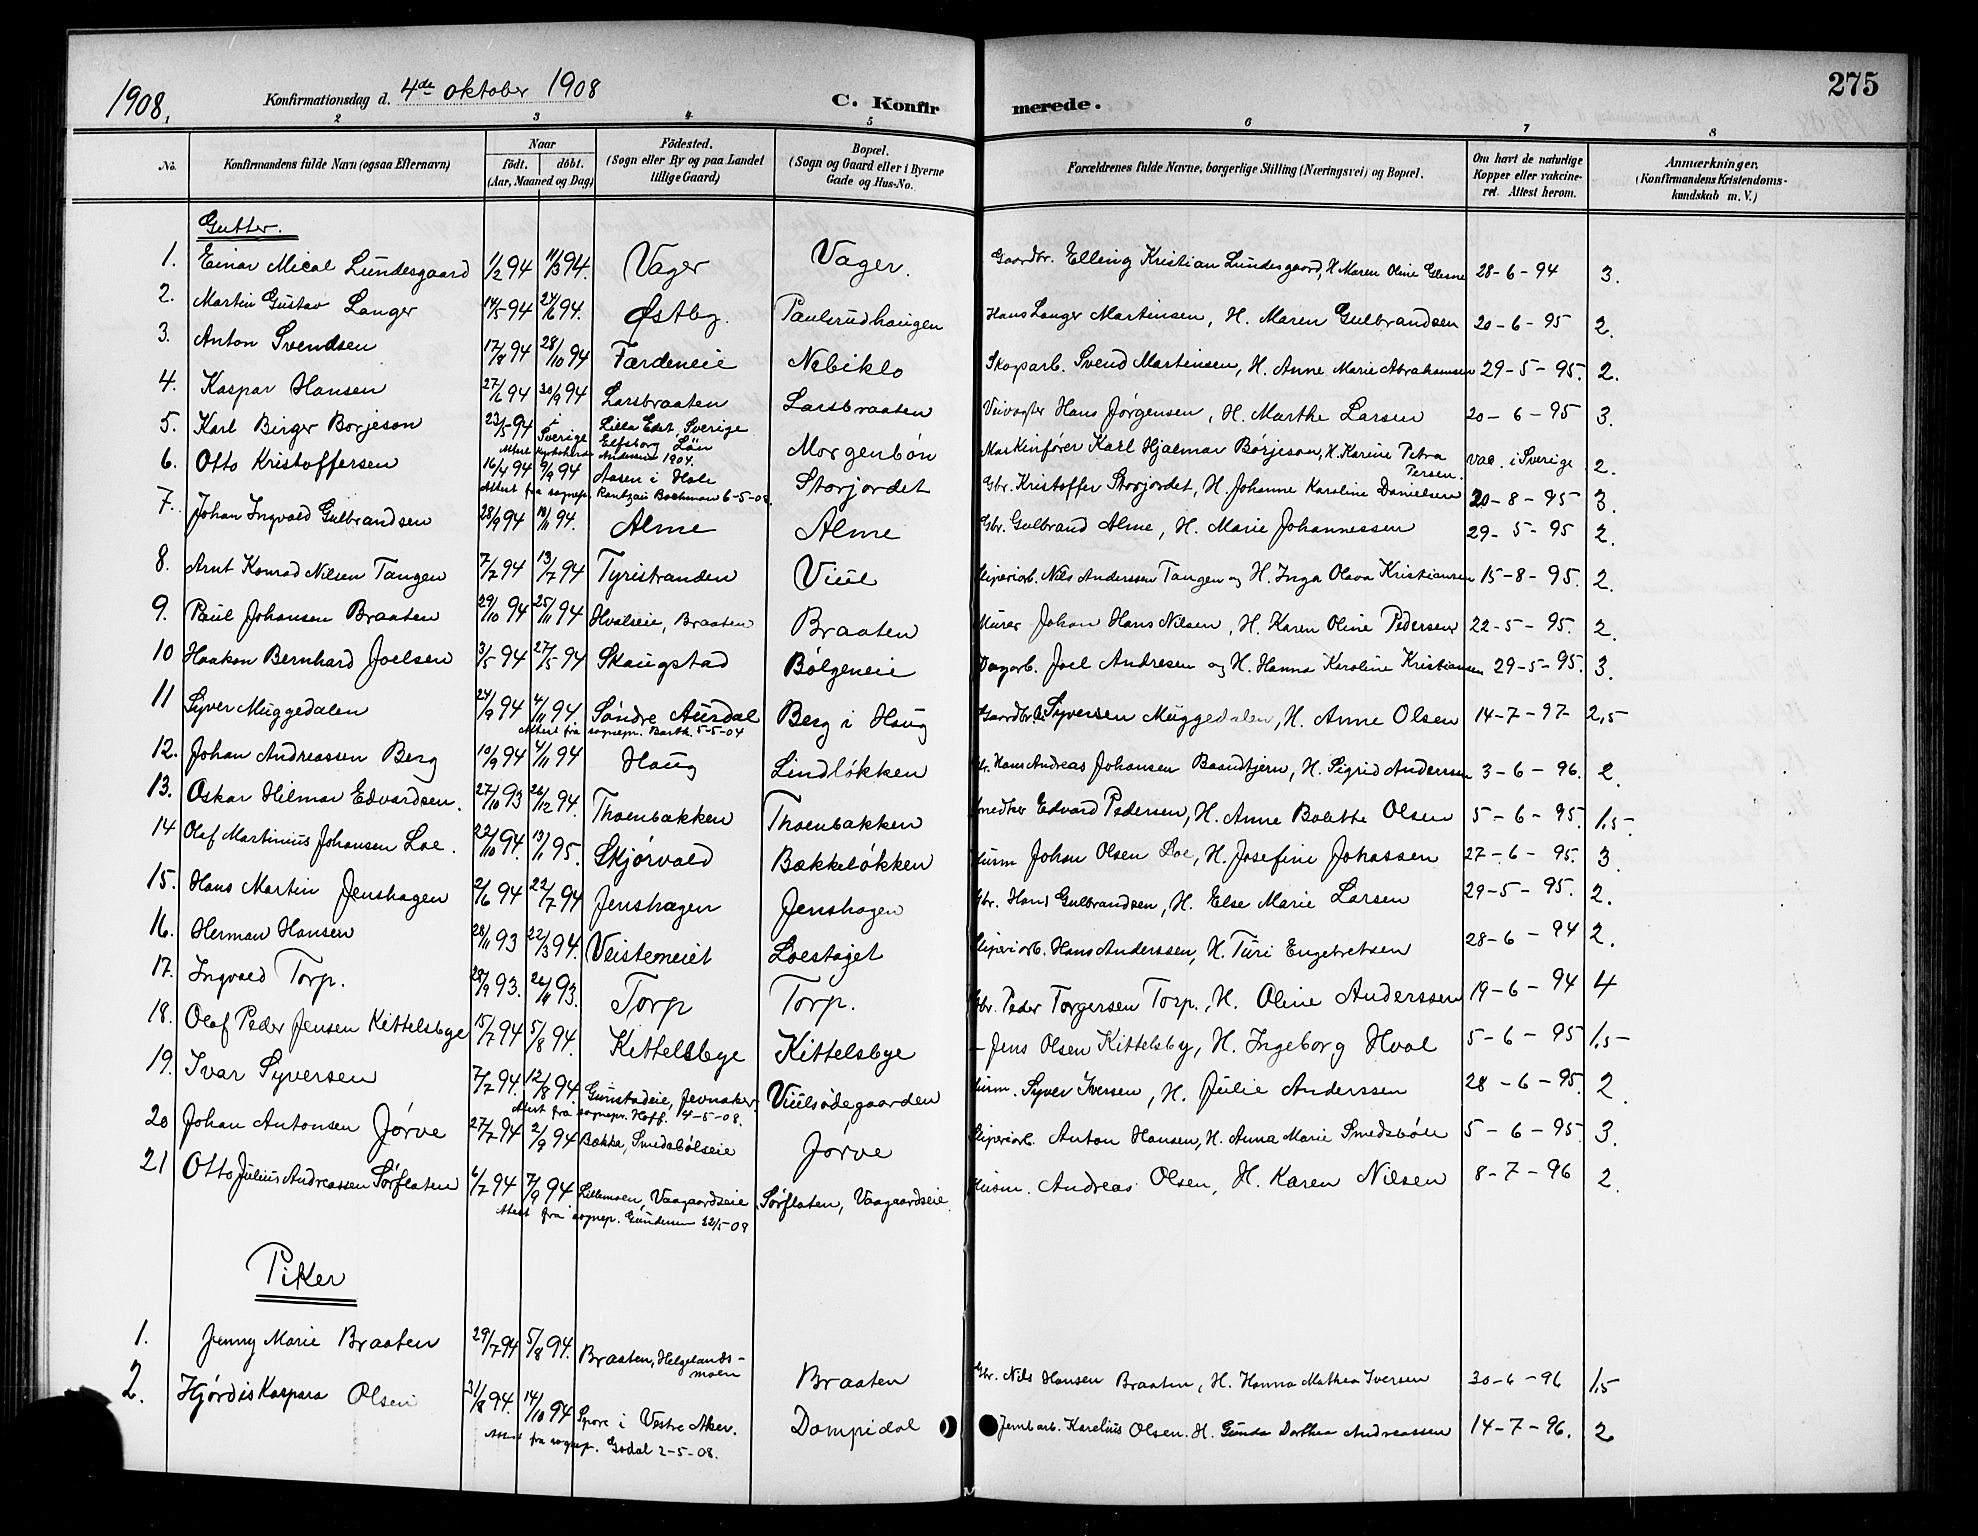 1908,
Konfirmationsdag d. 4de oktober 1908
C. Konfirmerede.
275
2 3 4 5 6 7 8
No.
Konfirmandens fulde Navn (ogsaa Efternavn)
Naar
født. døbt.
(Aar, Maaned og Dag)
Födested.
(Sogn eller By og paa Landet
tillige Gaard)
Bopæl.
(Sogn og Gaard eller i Byerne
Gade og Hus-No.
Forældrenes fulde Navne, borgerlige Stilling (Næringsvei) og Bopæl.
Om havt de naturlige
Kopper eller vakcine-
ret. Attest herom.
Anmærkninger.
(Konfirmandens Kristendoms-
kundskab m. V.)
Gutter.
1. Einar Mical Lundesgaard 1/2 94 11/3 94. Vager Vager. Gaardbr. Elling Kristian Lundesgaard, H. Maren Oline Glesne 28-6-94 3.
2. Martin Gustav Langer 14/5 94 24/6 94. Østby. Paulsrudhaugen Hans Langer Martinsen, H. Maren Gulbrandsen 20-6-95 2.
3. Anton Svendsen 17/8 94 28/10 94 Færdeneie Nebiklo Skoparb. Svend Martinsen, H. Anne Marie Abrahamsen 29-5-95. 2.
4. Kaspar Hansen 27/6 94 30/9 94 Larsbraaten Larsbraaten Veivogter Hans Jørgensen, H. Marthe Larsen 20-6-95 3.
5. Karl Birger Borjeson 23/5 94 i Sverige Lilla Edet Sverige
Elfsborg Län Morgenbön Maskinfører Karl Hjalmar Börjeson, H. Karine Petra
Persen. vac. i Sverige 2.
1904.
6. Otto Kristoffersen 16/4 94 9/9 94 Aasen i Hole Storjordet Gbr. Kristoffer Storjordet, H. Johanne Karoline Danielsen 20-8-95 3.
Attest fra sognepr. Rantzau Bochman 6-5-08.
7. Johan Ingvald Gulbrandsen 28/9 94 18/11 94. Alme Alme Gbr. Gulbrand Alme, H. Marie Johannessen 29-5-95 2.
8. Arnt Konrad Nilsen Tangen 7/2 94 13/7 94 Tyristranden Viul Sliperiarb. Nils Anderssen Tangen og H. Inga Olava Kristiansen 15-8-95. 2.
9. Paul Johansen Braaten 29/10 94 25/11 94 Hvalseie, Braaten Braaten Murer Johan Hans Nilsen, H. Karen Oline Pedersen 22-5-95. 2.
10 Haakon Bernhard Joelsen 3/5 94 27/5 94 Skaugstad Bølgeneie Dagarb. Joel Andresen og H. Hanna Karoline Kristiansen 29-5-95. 3.
11 Syver Muggedalen 24/9 94 4/11 94. Søndre Aurdal Berg i Haug Gaardbr. Syversen Muggedalen, H. Anne Olsen 14-7-97 2,5
Attest fra sognepr. Barth. 5-5-04
12. Johan Andreassen Berg 10/9 94 4/11 94 Haug Lindløkken Gbr. Hans Andreas Johansen Baandtjern, H. Sigrid Anderssen 3-6-96. 2.
13. Oskar Hilmar Edvardsen. 27/10 93 26/12 94. Thoenbakken Thoenbakken Smedker Edvard Pedersen, H. Anne Bolette Olsen 5-6-95. 1,5.
14 Olaf Martinius Johansen Loe. 22/10 94. 13/1 95. Skjørvold Bækkeløkken Husm Johan Olsen Loe, H. Josefine Johassen 27-6-95. 3.
15. Hans Martin Jenshagen 2/6 94 22/7 94 Jenshagen Jenshagen Gbr. Hans Gulbrandsen, H. Else Marie Larsen 29-5-95. 2.
16. Herman Hansen 28/11 93 22/3 94. Veisterneiet Loestaget Sliperiarb. Hans Anderssen, H. Turi Engebretsen 28-6-94 2.
17. Ingvald Torp. 28/9 93. 26/11 93. Torp Torp. Gbr. Peder Torgersen Torp., H. Oline Anderssen 19-6-94 4
18. Olaf Peder Jensen Kittelsbye 15/7 94 5/8 94. Kittelsbye Kittelsbye – Jens Olsen Kittelsby, H. Ingeborg Hval 5-6-95 1,5
19. Ivar Syversen 7/7 94. 12/8 94. Gunstadeie, Jevnaker. Viulsødegaarden Husm. Syver Iversen, H. Julie Anderssen 28-6-95. 2.
Attest fra sognepr. Hoff. 4-5-08.
20 Johan Antonsen Jørve 27/7 94 2/9 94 Bakka, Smedsbølseie Jørve Sliperiarb. Anton Hansen, H. Anna Marie Smedsbøle 5-6-95 3.
21 Otto Julius Andreassen Sørflaten 6/7 94 7/9 94 Lillemoen, Vaagaardseie Sørflaten, Vaagaardseie. Husm. Andreas Olsen, H. Karen Nilsen 8-7-96 2.
Attest fra sognep. Gundersen 22/5-08
Piker
1. Jenny Marie Braaten 29/7 94 5/8 94. Braaten, Helgelands-
moen Braaten Gbr. Nils Hansen Braaten, H. Hanna Mathea Iversen 30-6-96 1,5
2. Hjördis Kaspara Olsen 31/8 94. 14/10 94 Spore i Vestre Aker. Dompidal Jernb arb. Karelius Olsen. H. Gunda Dorthea Andreassen 14-7-96. 2
Attest fra sognep. Godal 2-5-08.